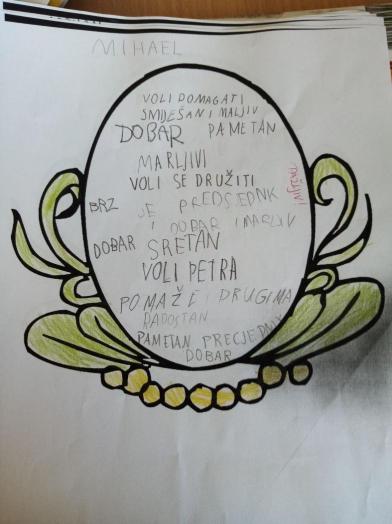 MIHAEL
VOLI DOMAGATI
SMIJEŠAN I MALJIV
DOBAR PAMETAN
MARLJIVI
VOLI SE DRUŽITI
BRZ JE PREDSJEDNK
I DOBAR I MARLJIV
DOBAR SRETAN
VOLI PETRA
POMAŽE DRUGIMA
RADOSTAN
PAMETAN PRECJEDNIK
DOBAR